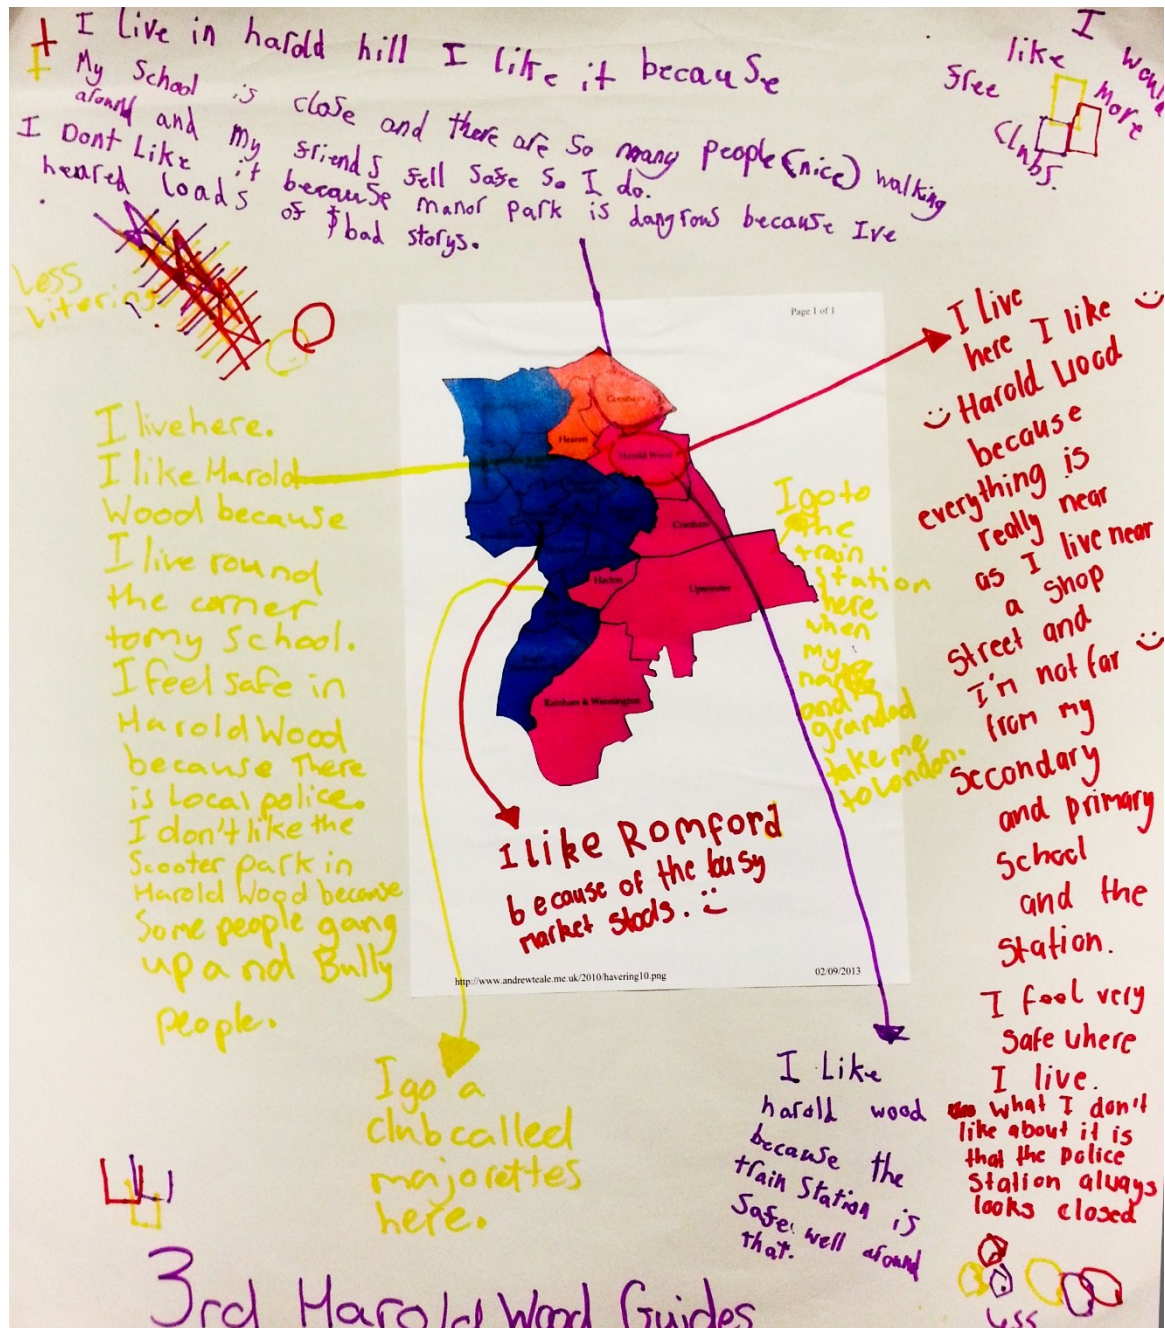 I live in harold hill I like it because
My School is close and there are so many people (nice) walking
around and my friends fell safe so I do.
I Dont Like it because manor park is dangrous because Ive
heared loads of bad storys.
I would
like more
free
clubs.
Less
Litering
Page 1 of 1
Gooshays
Heaton
Harold Wood
Cranham
Hacton
Upminster
Rainham & Wennington
I live here.
I like Harold
Wood because
I live round
the corner
to my school.
I feel safe in
Harold Wood
because There
is Local police.
I don't like the
Scooter park in
Harold Wood because
Some people gang
up and Bully
people.
I go to
the
train
station
here
when
my
and
grandad
take me
to London.
I Live
here I like
Harold Wood
because
everything is
really near
as I live near
a shop
street and
I'm not far
from my
Secondary
and primary
school
and the
station.
I feel very
safe where
I live.
what I don't
like about it is
that the police
station always
looks closed
I like Romford
because of the busy
market stools.
http://www.andrewteale.me.uk/2010/havering10.png
02/09/2013
I go a
club called
majorettes
here.
I Like
harold wood
because the
train Station is
Safe. well around
that.
3rd Harold Wood Guides
Less